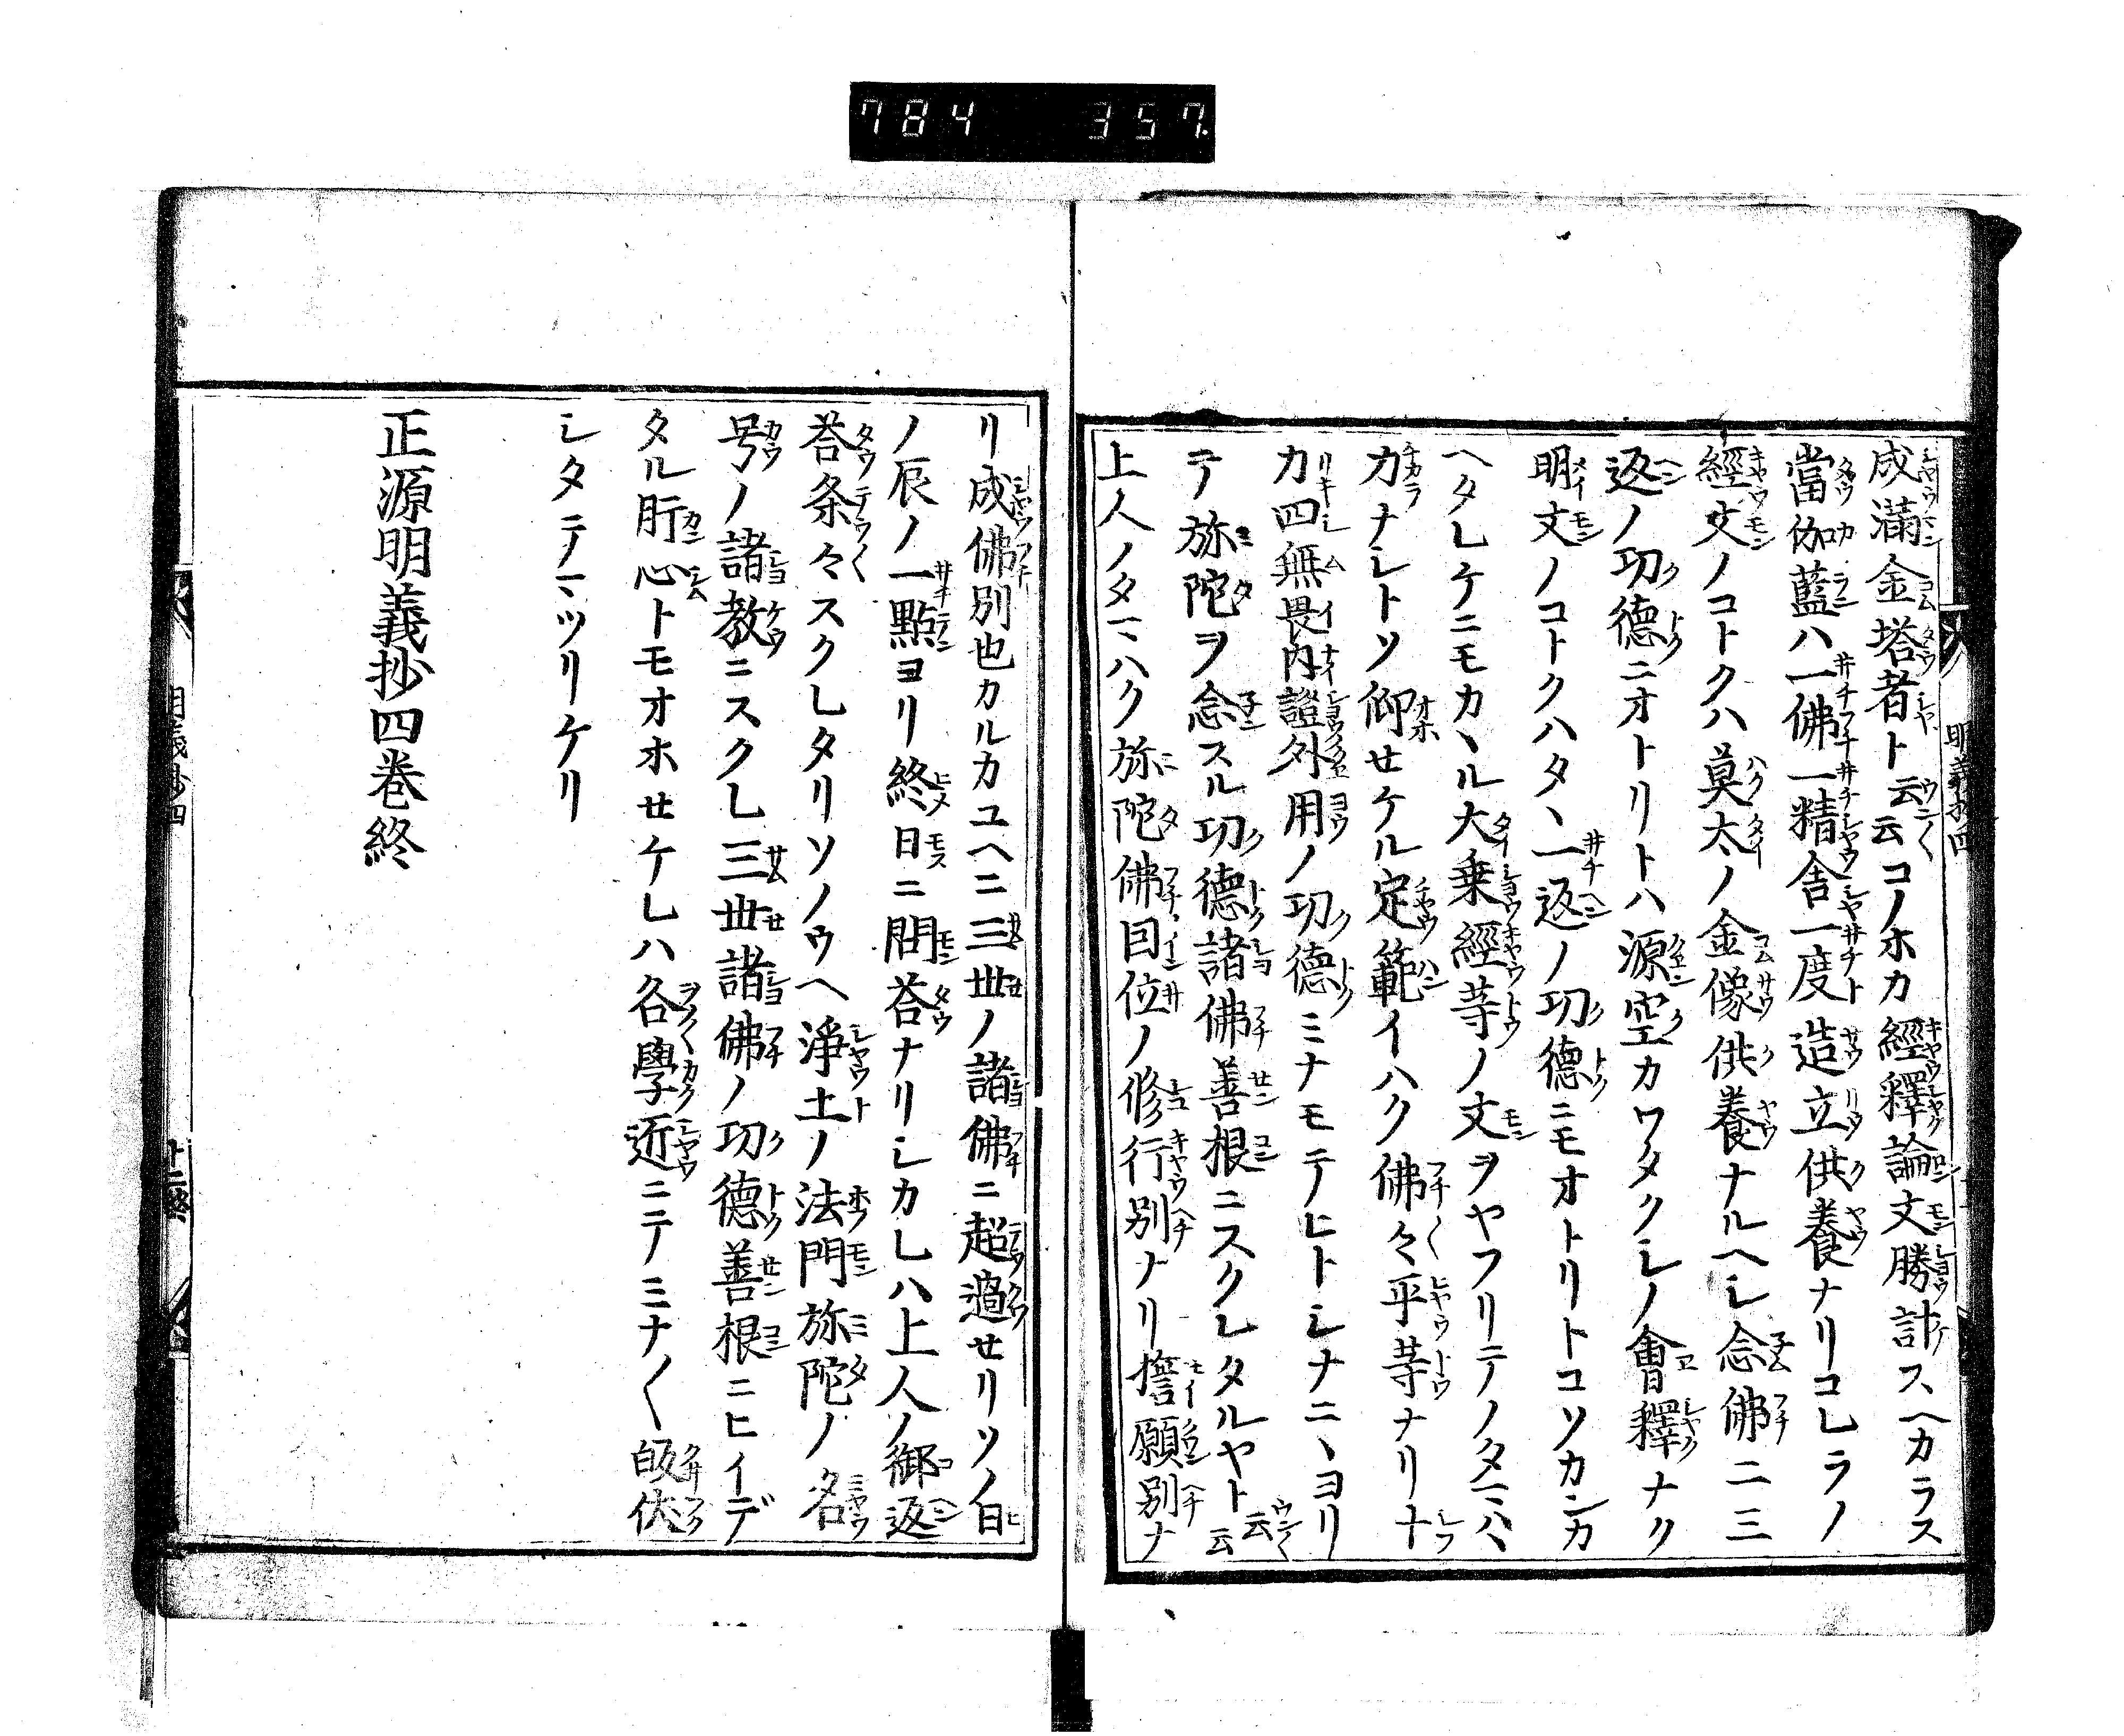 784 357
成滿金塔者ト云云コノホカ經釋論文勝計スヘカラス
當伽藍ハ一佛一精舎一度造立供養ナリコレラノ
經文ノコトクハ莫太ノ金像供養ナルヘシ念佛二三
返ノ功德ニオトリトハ源空カワタクシノ會釋ナク
明文ノコトクハタヽ一返ノ功德ニモオトリトコソカンカ
ヘタレケニモカヽル大乗經等ノ文ヲヤフリテノタマハヽ
カナシトソ仰セケル定範イハク佛々平等ナリ十
力四無畏內證外用ノ功德ミナモテヒトシナニヽヨリ
テ弥陀ヲ念スル功德諸佛善根ニスクレタルヤト云云
上人ノタマハク弥陀佛因位ノ修行別ナリ誓願別ナ
明義抄四
リ成佛別也カルカユヘニ三世ノ諸佛ニ超過セリソノ日
ノ辰ノ一點ヨリ終日ニ問荅ナリシカレハ上人ノ御返
荅条々スクレタリソノウヘ淨土ノ法門弥陀ノ名
号ノ諸教ニスクレ三世諸佛ノ功德善根ニヒイデ
タル肝心トモオホセケレハ各學近ニテミナ〱皈伏
シタテマツリケリ
正源明義抄四巻終
明義抄四
廿二終